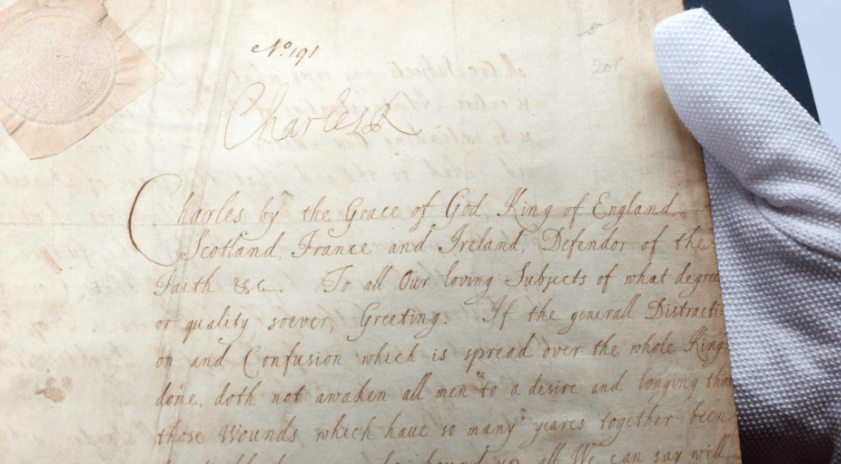 No. 191
Charles R
Charles by the Grace of God, King of England,
Scotland, France and Ireland, Defendor of the
Faith &c. To all Our loving Subjects of what degree
or quality soever, Greeting. If the generall Distracti
on and Confusion which is spread over the whole King
dome, doth not awaken all men to a desire and longing that
those Wounds which have so many yeares together been
bound up, all We can say will